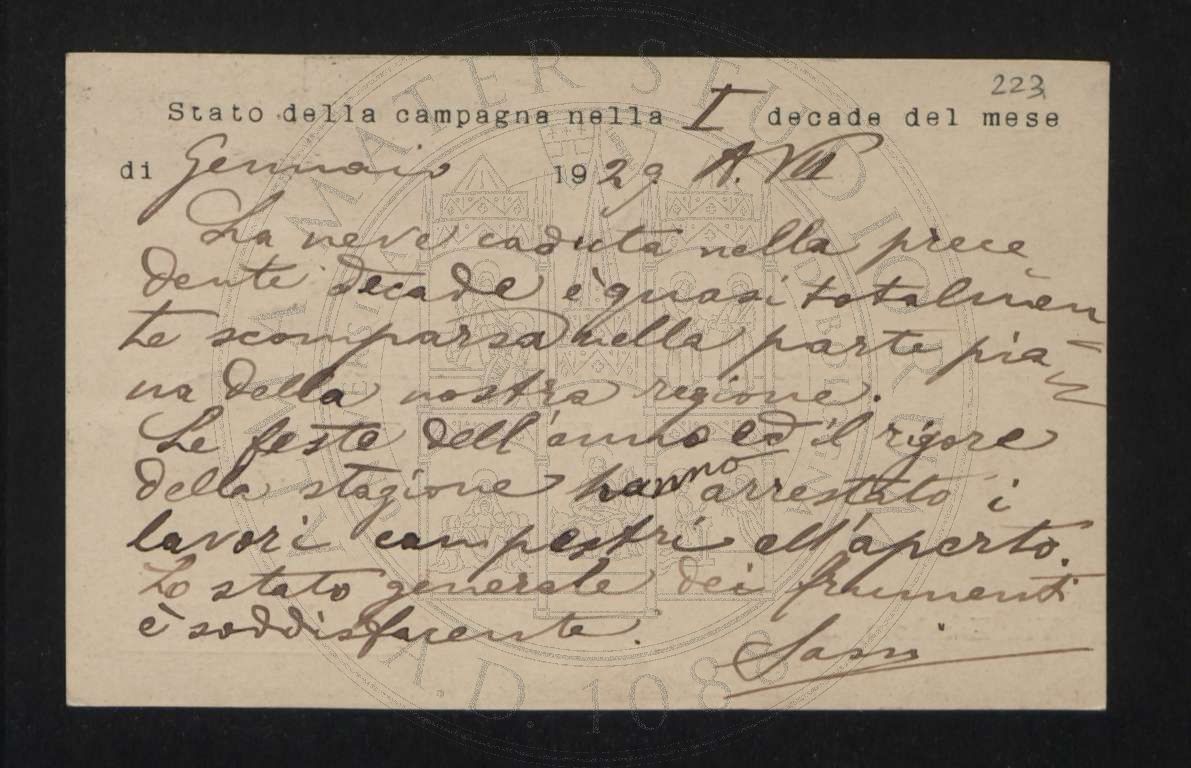 223
Stato della campagna nella I decade del mese
di Gennaio 1929. A. VII
La neve caduta nella prece
dente decade è quasi totalmen
te scomparsa nella parte pia=
na della nostra regione.
Le feste dell'anno ed il rigore
della stagione hanno arrestato i
lavori campestri all'aperto.
Lo stato generale dei frumenti
è soddisfacente.
ALMA MATER STUDIORUM
A.D. 1088